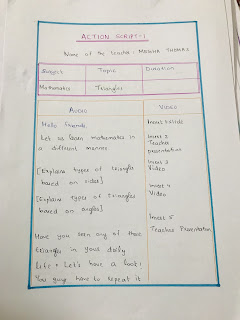 ACTION SCRIPT-1
Name of the teacher - MEGHA THOMAS
Subject Topic Duration
Mathematics Triangles
AUDIO VIDEO
Hello friends Insert 1: slide
Let us learn mathematics in
a different manner
Insert 2
Teacher
presentation
[Explain types of triangle
based on sides]
Insert 3
Video
[Explain types of triangles
based on angles]
Insert 4
Video
Insert 5
Teacher Presentation
Have you seen any of these
triangles in your daily
life. Let's have a look!
You guys have to repeat it